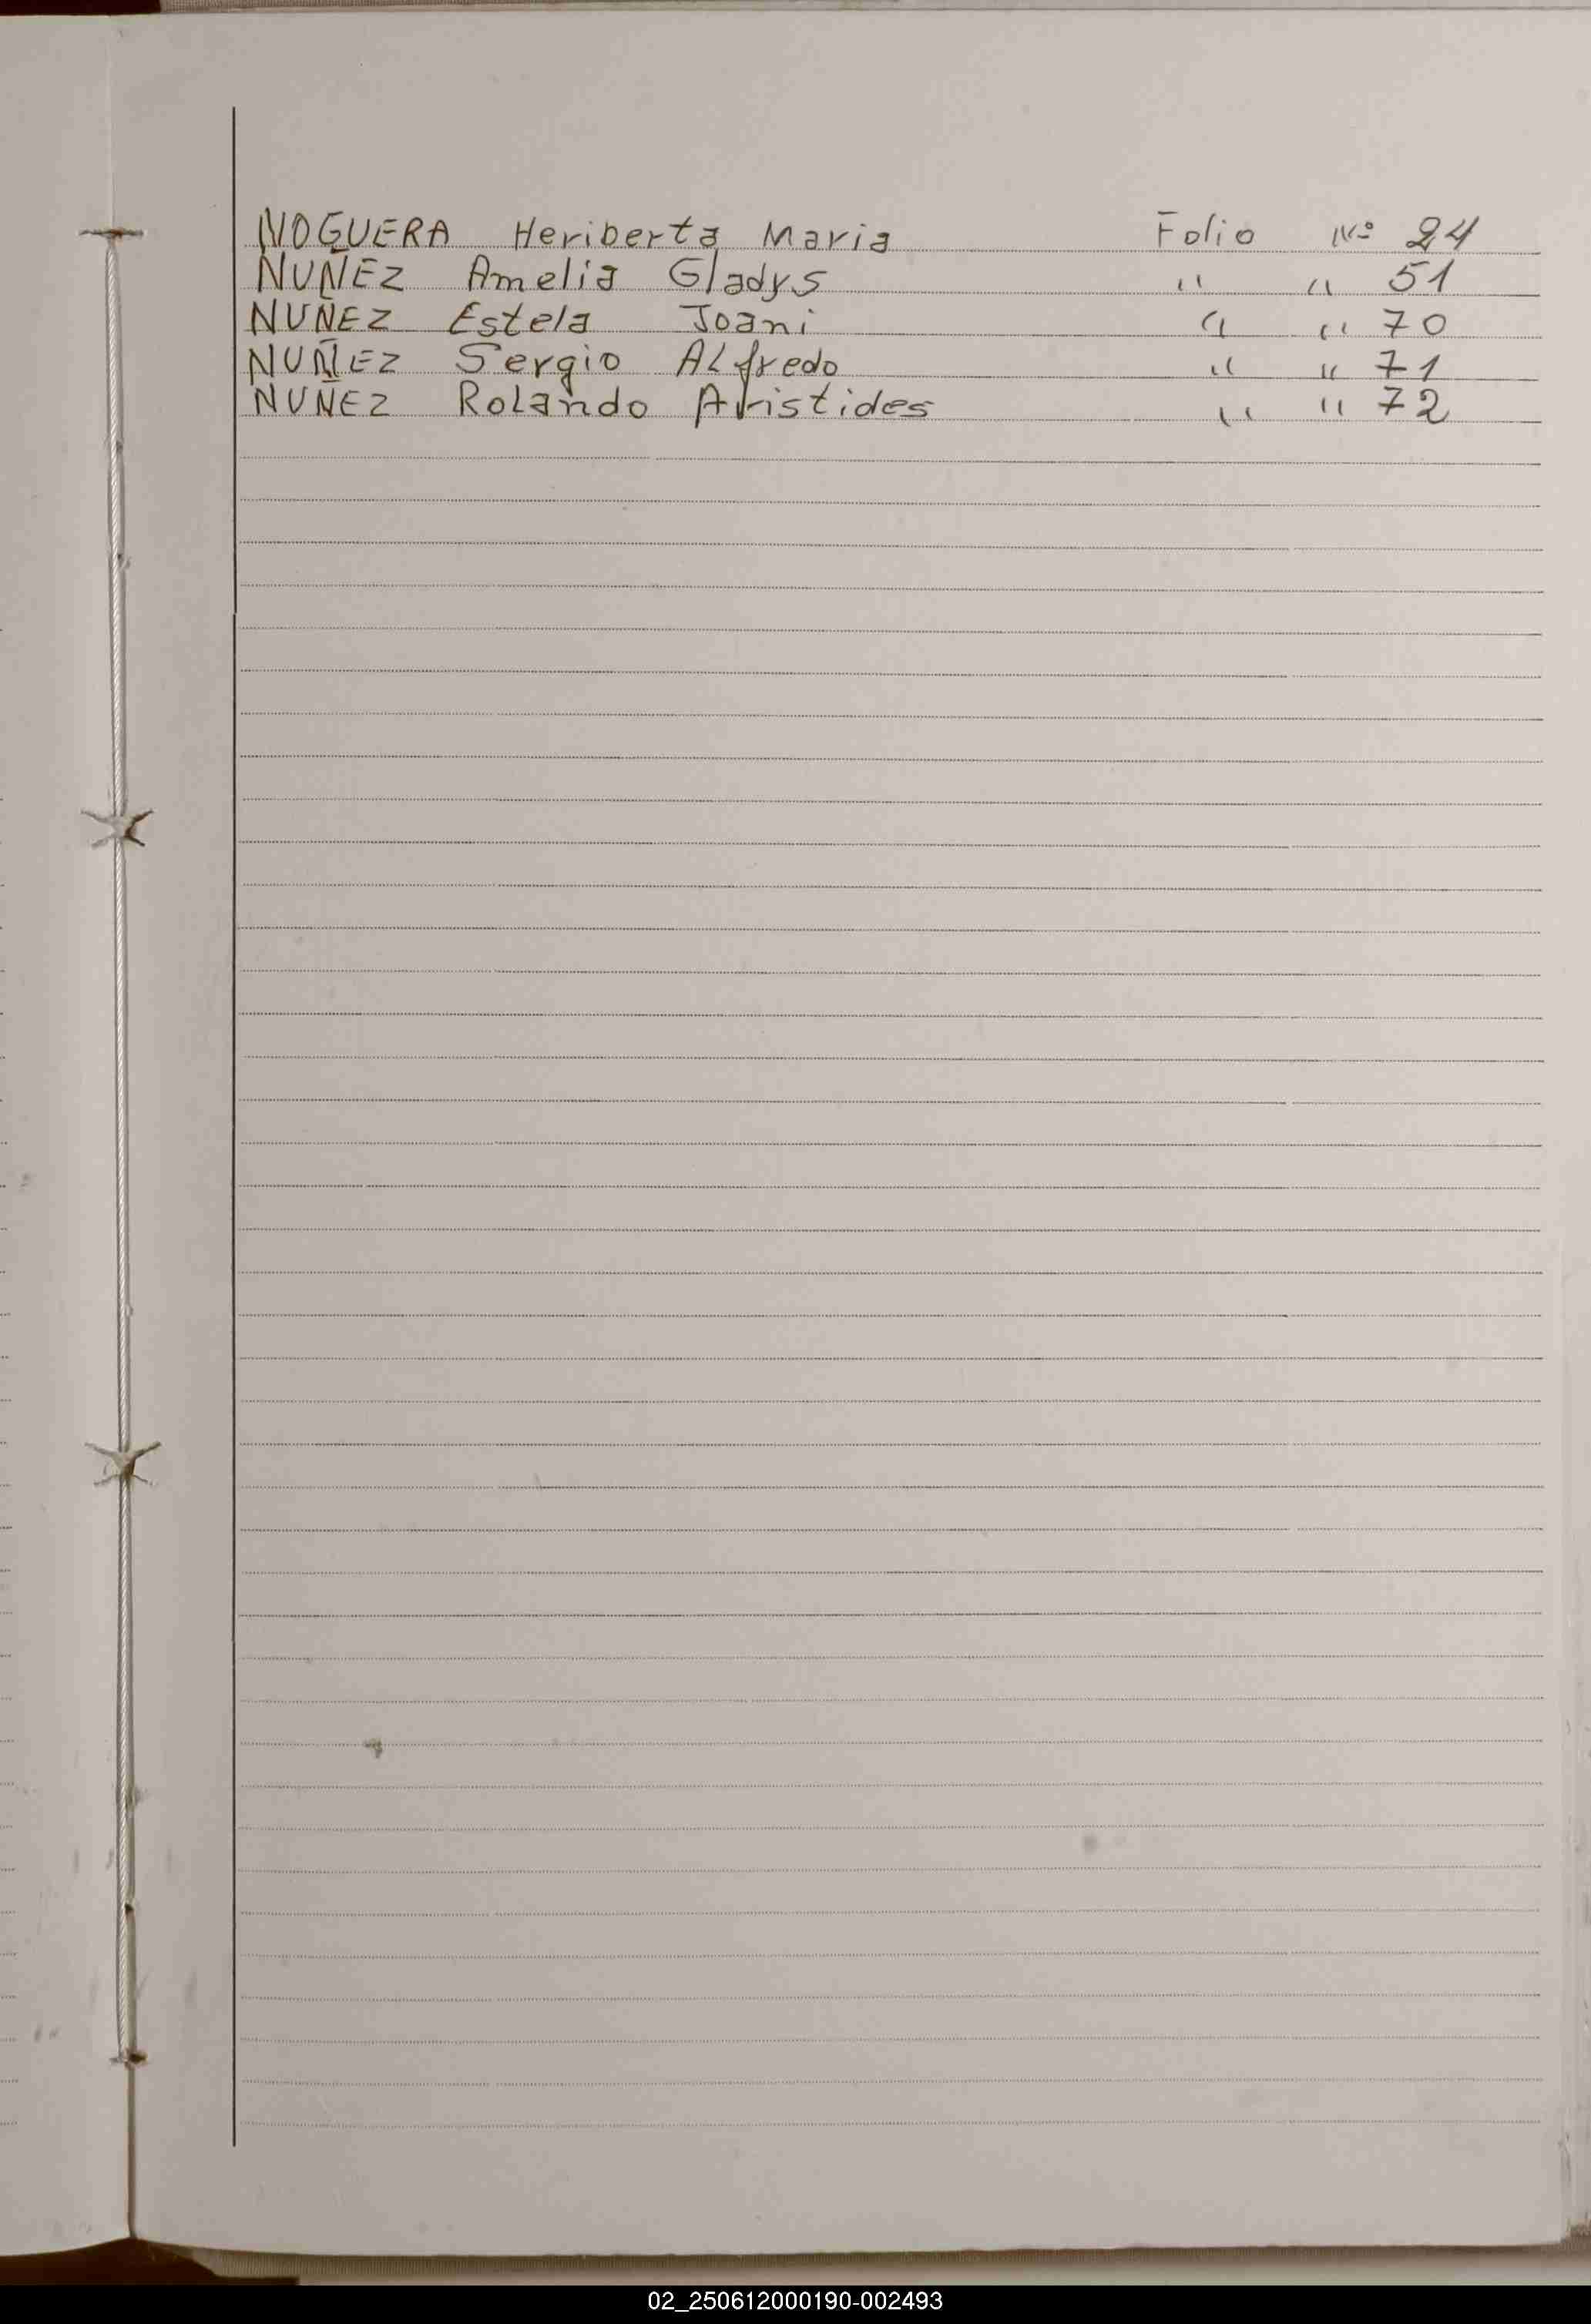 NOGUERA Heriberta Maria Folio Nº 24
NUÑEZ Amelia Gladys " " 51
NUÑEZ Estela Joani " " 70
NUÑEZ Sergio ALfredo " " 71
NUÑEZ Rolando Aristides " " 72
02_250612000190-002493